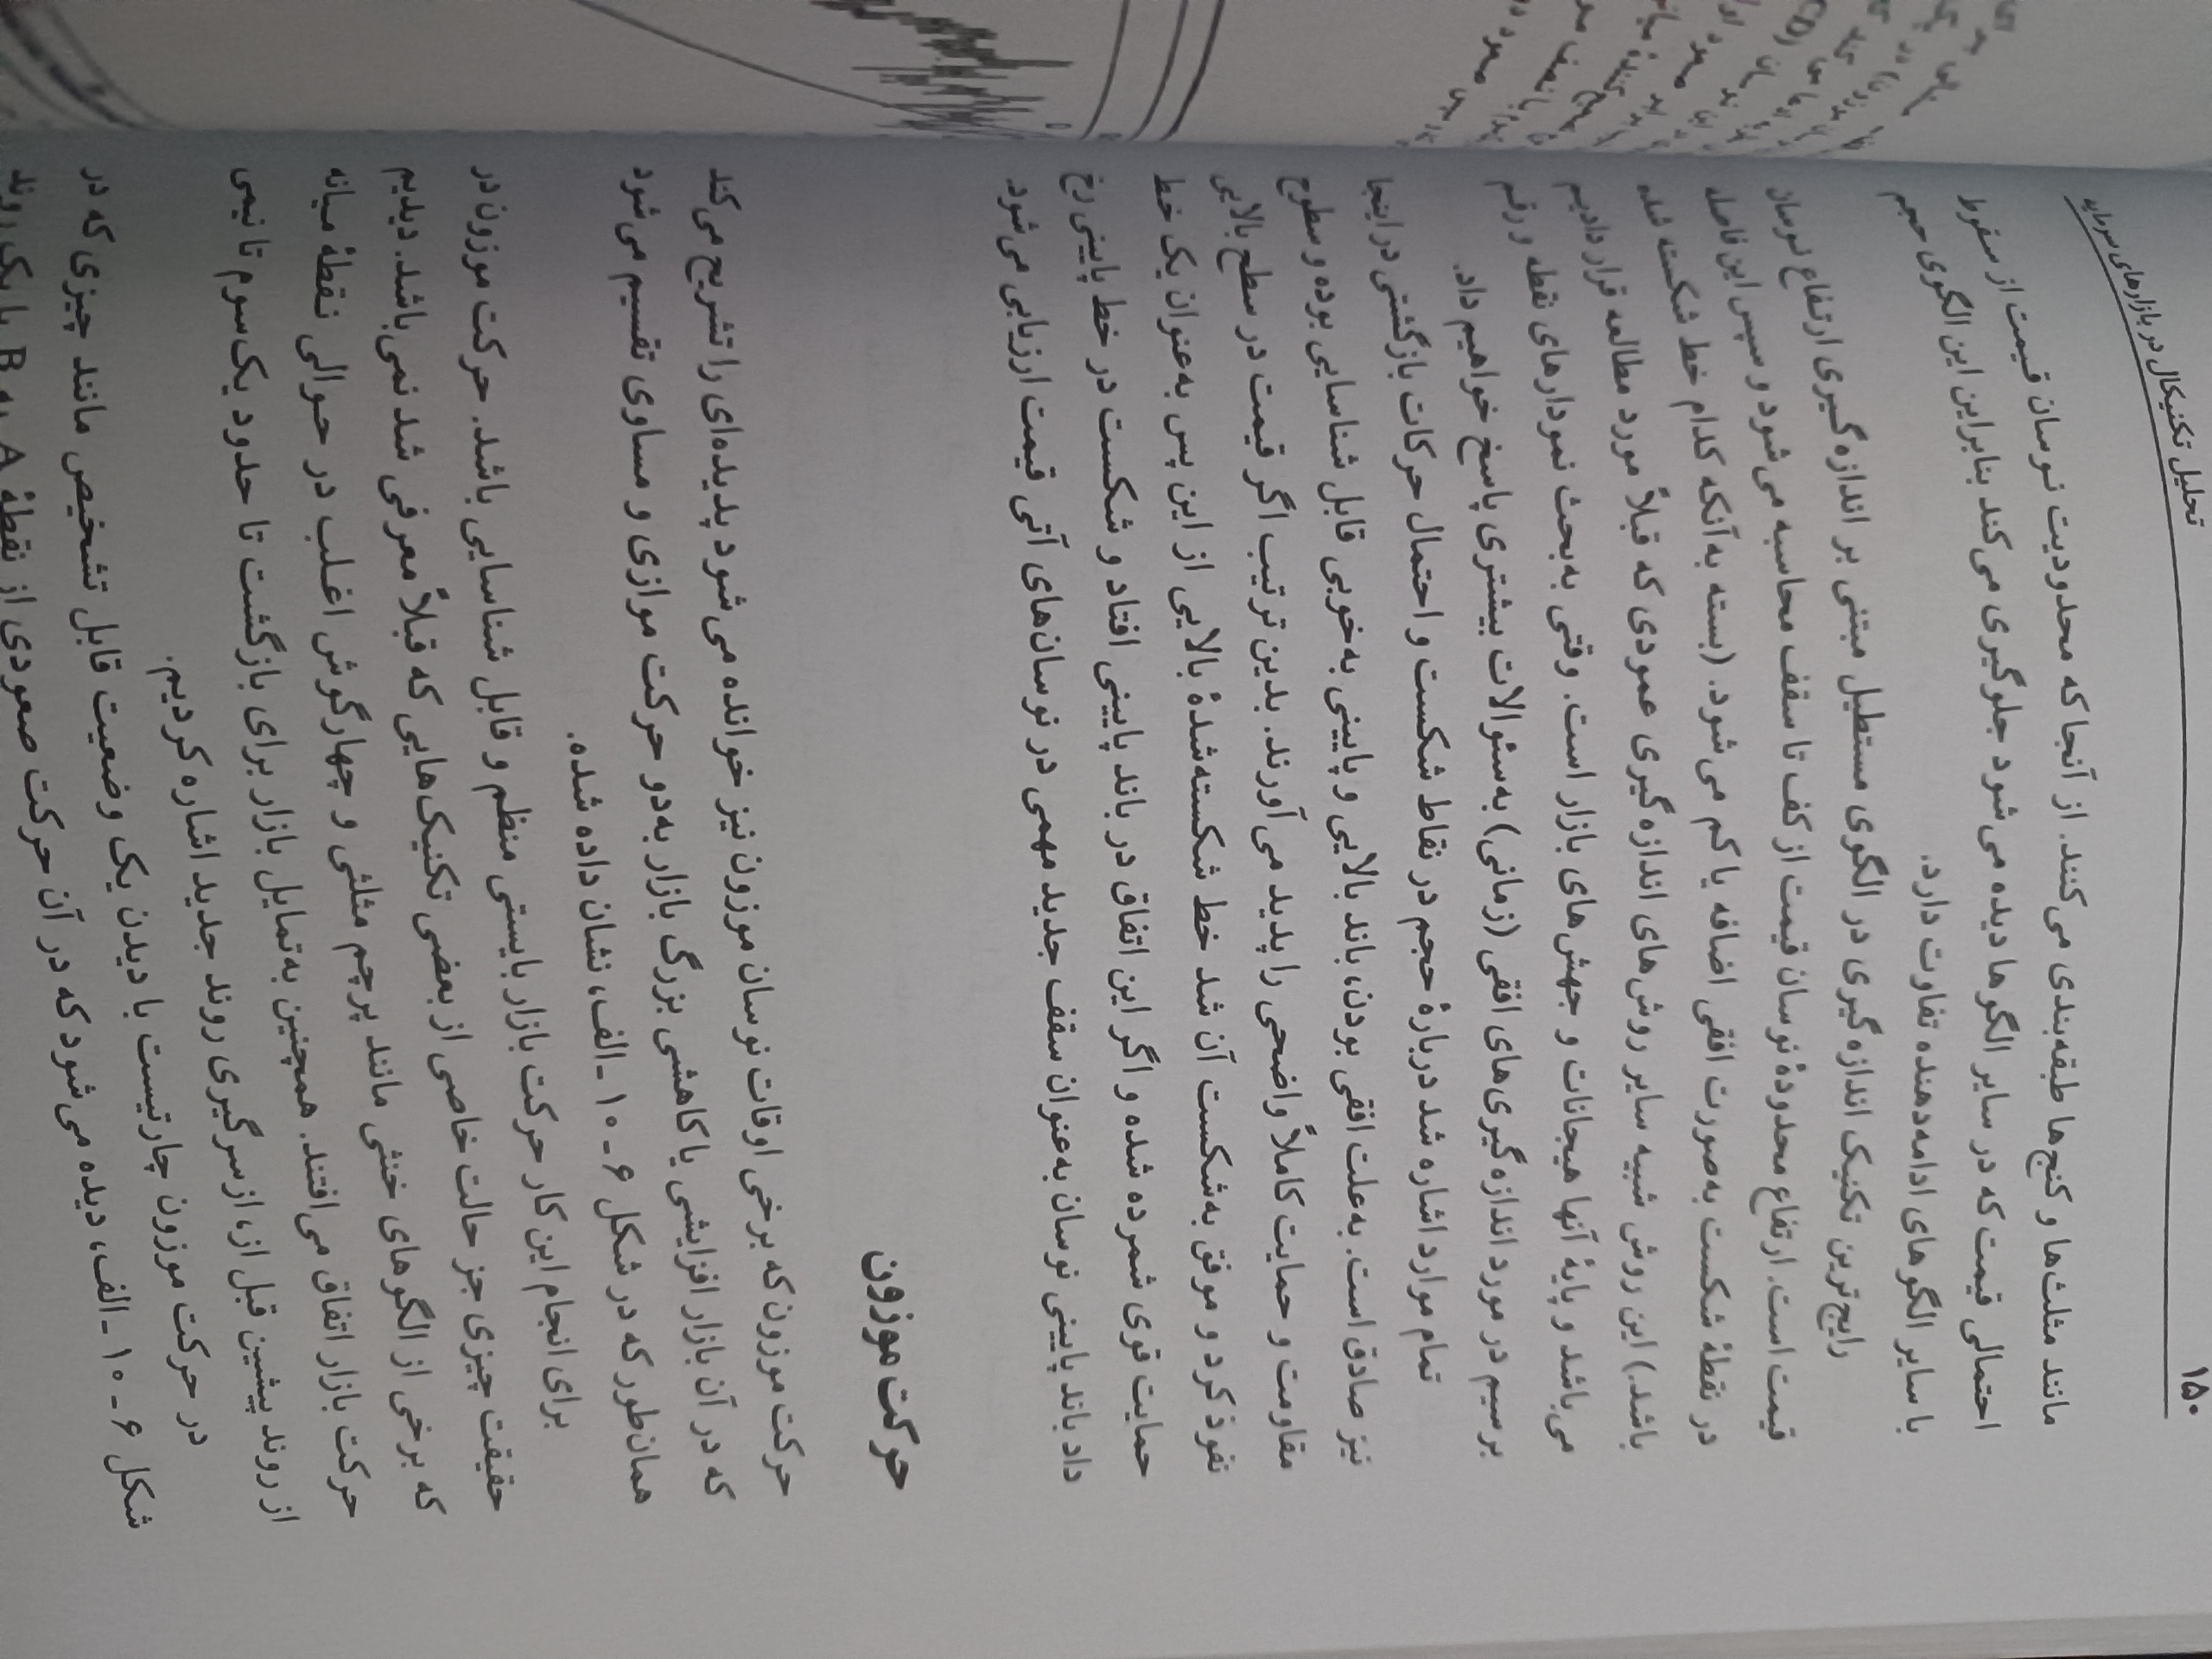 ۱۵۰
تحلیل تکنیکال در بازارهای سرمایه
مانند مثلث‌ها و کنج‌ها طبقه‌بندی می‌کنند. از آنجا که محدودیت نوسان قیمت از سقوط
احتمالی قیمت که در سایر الگوها دیده می‌شود جلوگیری می‌کند بنابراین این الگوی حجم
با سایر الگوهای ادامه‌دهنده تفاوت دارد.
رایج‌ترین تکنیک اندازه‌گیری در الگوی مستطیل مبتنی بر اندازه‌گیری ارتفاع نوسان
قیمت است. ارتفاع محدودهٔ نوسان قیمت از کف تا سقف محاسبه می‌شود و سپس این فاصله
در نقطهٔ شکست به‌صورت افقی اضافه یا کم می‌شود. (بسته به آنکه کدام خط شکسته شده
باشد.) این روش شبیه سایر روش‌های اندازه‌گیری عمودی که قبلاً مورد مطالعه قرار دادیم
می‌باشد و پایهٔ آنها هیجانات و جهش‌های بازار است. وقتی به‌بحث نمودارهای نقطه و رقم
برسیم در مورد اندازه‌گیری‌های افقی (زمانی) به‌سئوالات بیشتری پاسخ خواهیم داد.
تمام موارد اشاره شد دربارهٔ حجم در نقاط شکست و احتمال حرکات بازگشتی در اینجا
نیز صادق است. به‌علت افقی بودن، باند بالایی و پایینی به‌خوبی قابل شناسایی بوده و سطوح
مقاومت و حمایت کاملاً واضحی را پدید می‌آورند. بدین ترتیب اگر قیمت در سطح بالایی
نفوذ کرد و موفق به‌شکست آن شد خط شکسته‌شدهٔ بالایی از این پس به‌عنوان یک خط
حمایت قوی شمرده شده و اگر این اتفاق در باند پایینی افتاد و شکست در خط پایینی رخ
داد باند پایینی نوسان به‌عنوان سقف جدید مهمی در نوسان‌های آتی قیمت ارزیابی می‌شود.
حرکت موزون
حرکت موزون که برخی اوقات نوسان موزون نیز خوانده می‌شود پدیده‌ای را تشریح می‌کند
که در آن بازار افزایشی یا کاهشی بزرگ بازار به‌دو حرکت موازی و مساوی تقسیم می‌شود
همان‌طور که در شکل ۶ ـ ۱۰ ـ الف، نشان داده شده.
برای انجام این کار حرکت بازار بایستی منظم و قابل شناسایی باشد. حرکت موزون در
حقیقت چیزی جز حالت خاصی از بعضی تکنیک‌هایی که قبلاً معرفی شد نمی‌باشد. دیدیم
که برخی از الگوهای خنثی مانند پرچم مثلثی و چهارگوش اغلب در حوالی نقطهٔ میانه
حرکت بازار اتفاق می‌افتند. همچنین به‌تمایل بازار برای بازگشت تا حدود یک‌سوم تا نیمی
از روند پیشین قبل از، ازسرگیری روند جدید اشاره کردیم.
در حرکت موزون چارتیست با دیدن یک وضعیت قابل تشخیص مانند چیزی که در
شکل ۶ ـ ۱۰ ـ الف، دیده می‌شود که در آن حرکت صعودی از نقطهٔ A به B با یک روند